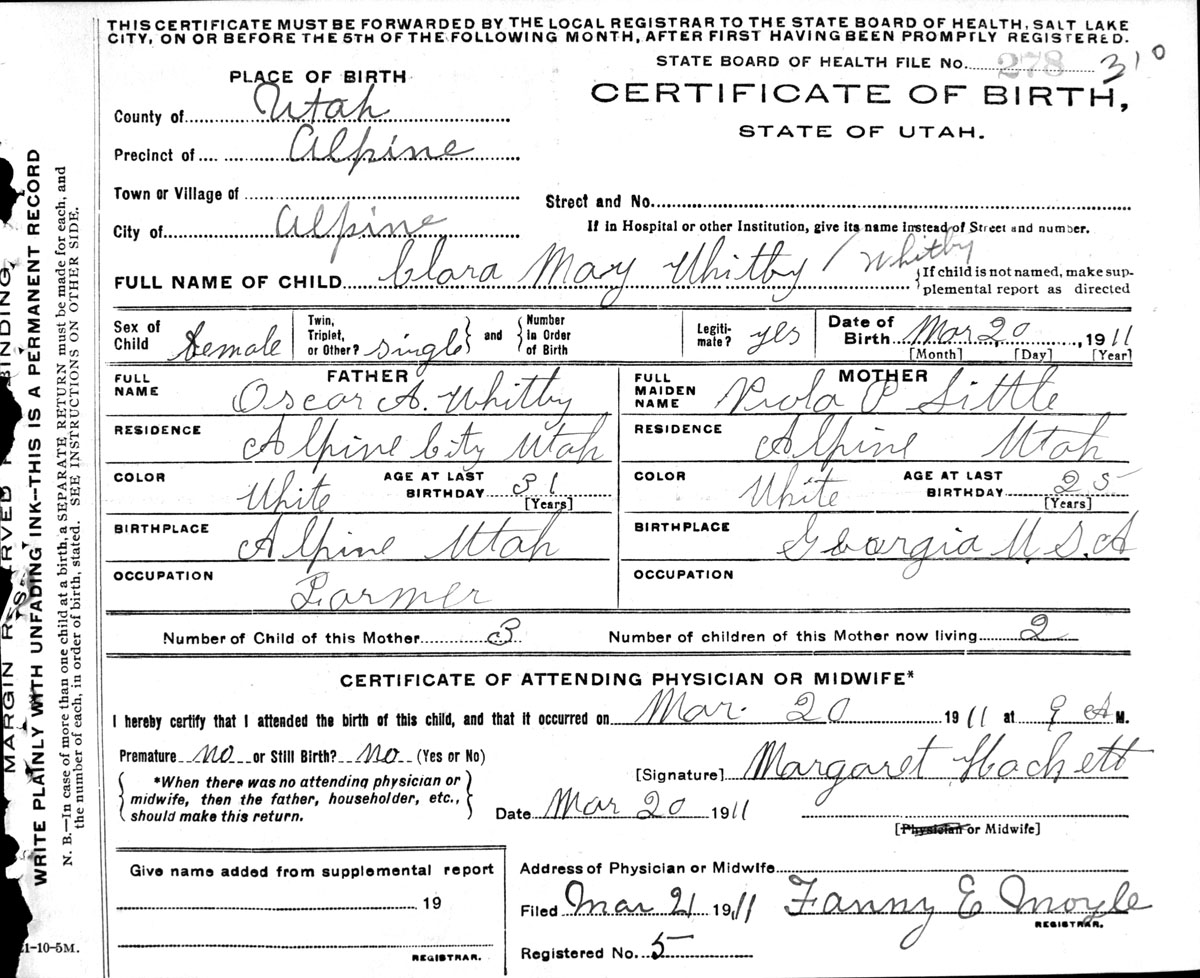 THIS CERTIFICATE MUST BE FORWARDED BY THE LOCAL REGISTRAR TO THE STATE BOARD OF HEALTH, SALT LAKE
CITY, ON OR BEFORE THE 5TH OF THE FOLLOWING MONTH, AFTER FIRST HAVING BEEN PROMPTLY REGISTERED.
STATE BOARD OF HEALTH FILE No. 278 310
PLACE OF BIRTH
CERTIFICATE OF BIRTH,
STATE OF UTAH.
County of Utah
Precinct of Alpine
Town or Village of
Street and No.
City of Alpine
If in Hospital or other Institution, give its name instead of Street and number.
FULL NAME OF CHILD Clara May Whitby / Whitby
{If child is not named, make sup-
plemental report as directed
Sex of Child female
Twin, Triplet, or Other? single } and { Number In Order of Birth
Legiti-mate? yes
Date of Birth Mar 20, 1911
[Month] [Day] [Year]
FATHER
FULL NAME Oscar A. Whitby
RESIDENCE Alpine City Utah
COLOR White AGE AT LAST BIRTHDAY 31 [Years]
BIRTHPLACE Alpine Utah
OCCUPATION Farmer
MOTHER
FULL MAIDEN NAME Viola P Little
RESIDENCE Alpine Utah
COLOR White AGE AT LAST BIRTHDAY 25 [Years]
BIRTHPLACE Georgia U.S.A
OCCUPATION
Number of Child of this Mother 3 Number of children of this Mother now living 2
CERTIFICATE OF ATTENDING PHYSICIAN OR MIDWIFE*
I hereby certify that I attended the birth of this child, and that it occurred on Mar. 20 1911 at 9 A M.
Premature no or Still Birth? no (Yes or No)
*When there was no attending physician or
midwife, then the father, householder, etc.,
should make this return.
[Signature] Margaret Hackett
Date Mar 20 1911
[Physician or Midwife]
Give name added from supplemental report
19
REGISTRAR.
Address of Physician or Midwife
Filed Mar 21 1911 Fanny E Moyle
REGISTRAR.
Registered No. 5
MARGIN RESERVED BINDING
WRITE PLAINLY WITH UNFADING INK—THIS IS A PERMANENT RECORD
N. B.—In case of more than one child at a birth, a SEPARATE RETURN must be made for each, and
the number of each, in order of birth, stated. SEE INSTRUCTIONS ON OTHER SIDE.
1-10-5M.